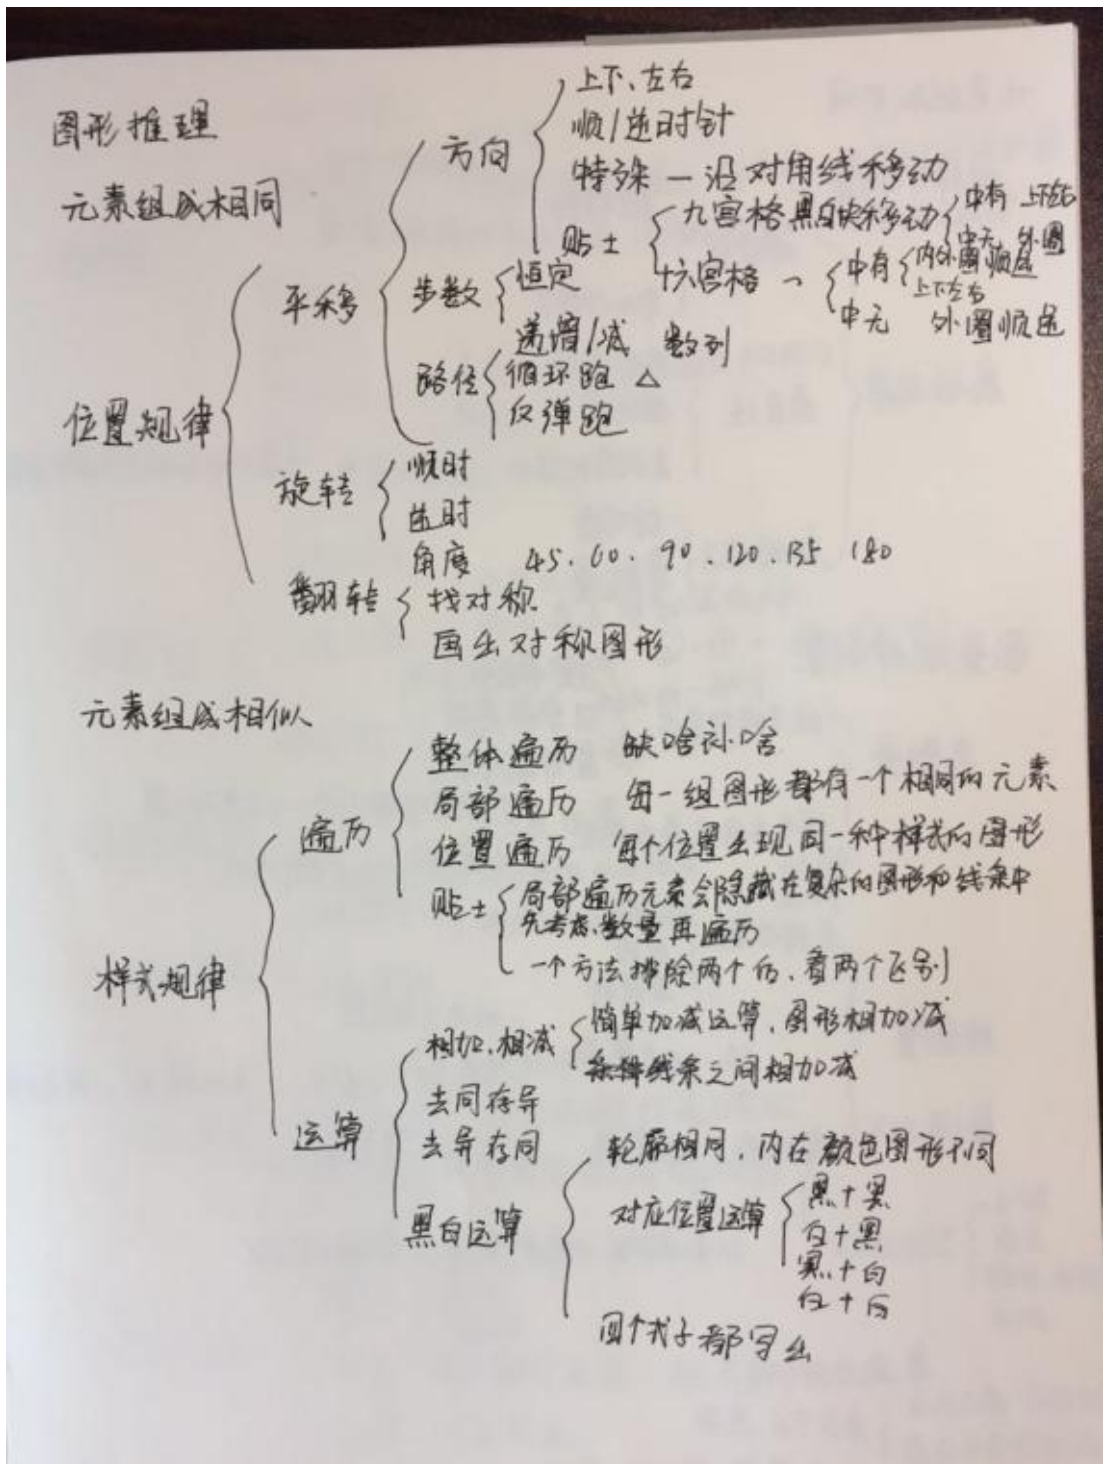 图形推理
元素组成相同
位置规律
平移
方向
上下、左右
顺/逆时针
特殊 — 沿对角线移动
贴士
九宫格黑白块移动
中有 上下左右
中无 外圈
十六宫格
中有
内外圈顺逆
上下左右
中无 外圈顺逆
步数
恒定
递增/减 数列
路径
循环跑 △
反弹跑
旋转
顺时
逆时
角度 45. 60. 90. 120. 135 180
翻转
找对称
画出对称图形
元素组成相似
样式规律
遍历
整体遍历 缺啥补啥
局部遍历 每一组图形都有一个相同的元素
位置遍历 每个位置出现同一种样式的图形
贴士
局部遍历元素会隐藏在复杂的图形和线条中
先考虑数量再遍历
一个方法排除两个后、看两个区别
运算
相加、相减
简单加减运算、图形相加减
线条之间相加减
去同存异
去异存同
黑白运算
轮廓相同、内在颜色图形不同
对应位置运算
黑+黑
白+黑
黑+白
白+白
四个式子都写出